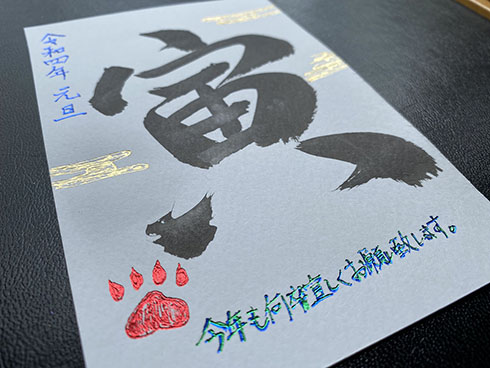 寅
令和四年 元旦
今年も何卒宜しくお願い致します。